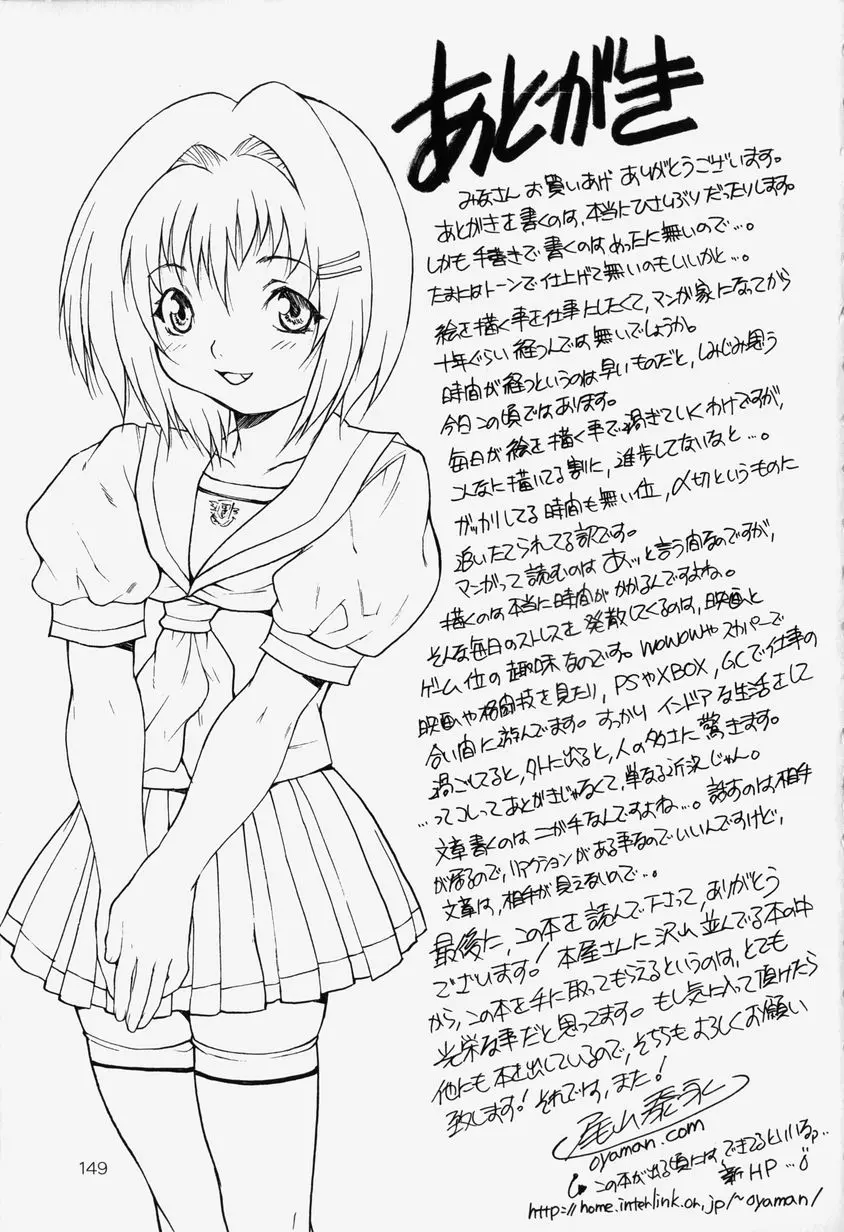 あとがき
みなさん お買いあげ ありがとうございます。
あとがきを書くのは、本当にひさしぶりだったりします。
しかも 手書きで 書くのは めったに無いので…。
たまにはトーンで仕上げて無いのもいいかと…。
絵を描く事を仕事にしたくて、マンガ家になってから
十年ぐらい 経つんでは無いでしょうか。
時間が経つというのは早いものだと、しみじみ思う
今日この頃ではあります。
毎日が絵を描く事で過ぎていくわけですが、
こんなに描いてる割に、進歩してないなと…。
ガッカリしてる 時間も無い位、〆切というものに
追いたてられてる訳です。
マンガって 読むのは あッと言う間なのですが、
描くのは本当に時間が かかるんですよね。
そんな毎日のストレスを 発散してくるのは、映画と
ゲーム位の趣味なのです。WOWOWやスカパーで
映画や格闘技を見たり、PSやXBOX、GCで仕事の
合い間に遊んでます。すっかり インドアな生活をして
過ごしてると、外に出ると、人の多さに驚きます。
…ってコレってあとがきじゃなくて、単なる近況じゃん。
文章書くのは ニが手なんですよね…。話すのは、相手
が居るので、リアクションがある事なのでいいんですけど、
文章は、相手が見えないので…。
最後に、この本を 読んで下さって、ありがとう
でざいます! 本屋さんに沢山 並んでる本の中
から、この本を手に取ってもらえるというのは、とても
光栄な事だと思ってます。もし気に入って頂けたら
他にも 本を出しているので、そちらも よろしくお願い
致します! それでは、また!
尾山泰永
oyaman.com
この本が出る頃には、できてるといいな…
新HP…
http://home.interlink.or.jp/~oyaman/
149